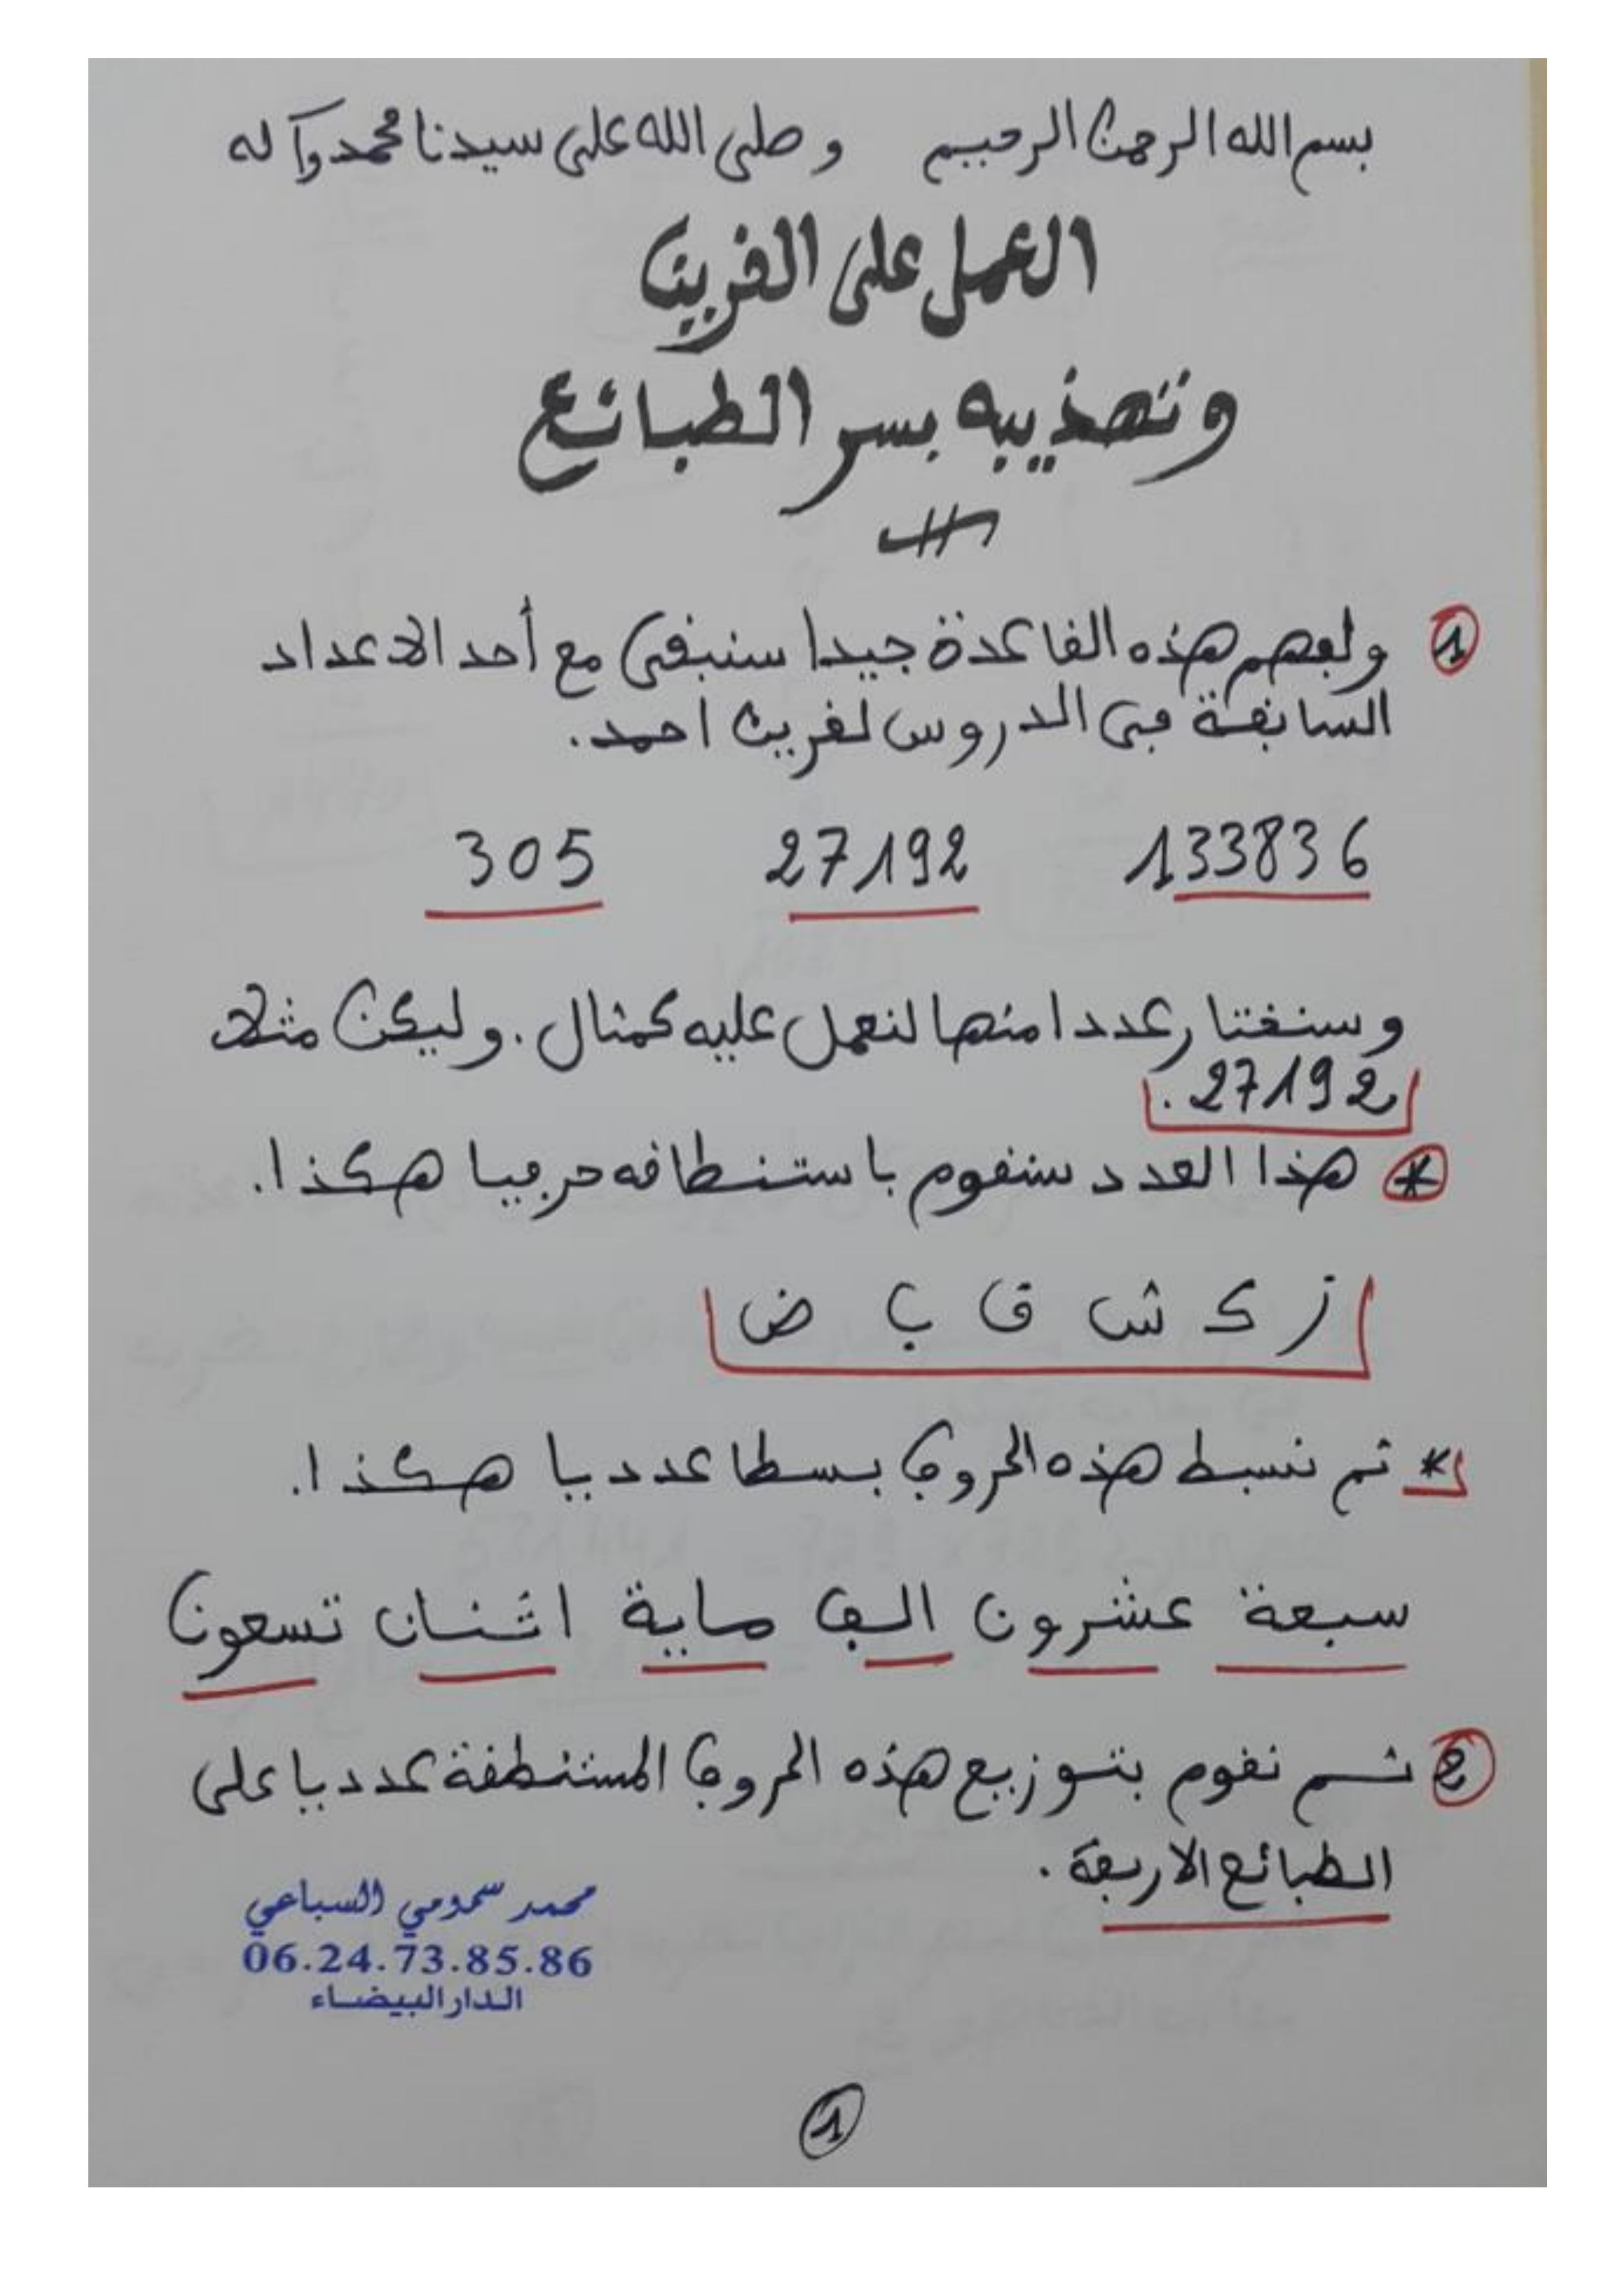 بسم الله الرحمن الرحيم وصلى الله على سيدنا محمد وآله
العمل على القرين
وتهذيبه بسر الطبائع
1 ولفهم هذه القاعدة جيدا سنبقى مع أحد الاعداد
السابقة في الدروس لقرين احمد.
133836 27192 305
وسنختار عددا منها لنعمل عليه كمثال. وليكن مثلا
27192.
* هذا العدد سنقوم باستنطاقه حرفيا هكذا.
ز ك ش ق ب ض
* تم نبسط هذه الحروف بسطا عدديا هكذا.
سبعة عشرون الف ماية اثنان تسعون
2 ثم نقوم بتوزيع هذه الحروف المستنطقة عدديا على
الطبائع الاربعة.
محمد سمومي السباعي
06.24.73.85.86
الدار البيضاء
1